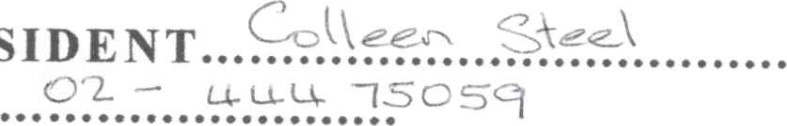 SIDENT Colleen Steel
02 - 444 75059